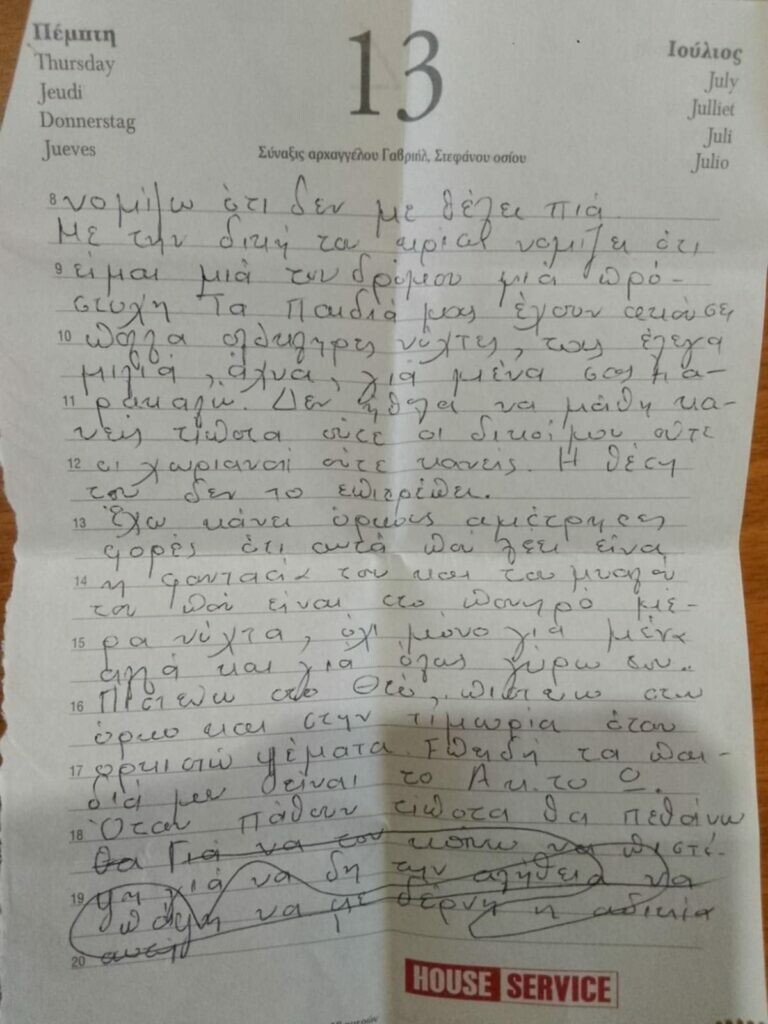 Πέμπτη
Thursday
Jeudi
Donnerstag
Jueves
13
Ιούλιος
July
Julliet
Juli
Julio
Σύναξις αρχαγγέλου Γαβριήλ, Στεφάνου οσίου
8 νομίζω ότι δεν με θέλει πιά
Με την δική του νομίζει ότι
9 είμαι μιά του δρόμου μιά πρό-
στυχη Τα Παιδιά μας έχουν ακούσει
10 πολλά ολόκληρες νύχτες, τους έλεγα
μιλιά, άχνα, γιά μένα σας πα-
11 ρακαλώ. Δεν ήθελα να μάθη κα-
νείς τίποτα ούτε οι δικοί μου ούτε
12 οι χωριανοί ούτε κανείς. Η θέση
του δεν το επιτρέπει.
13 Έχω κάνει όρκους αμέτρητες
φορές ότι αυτά πού λέει είναι
14 η φαντασία του και του μυαλού
του πού είναι στο πονηρό μέ-
15 ρα νύχτα, όχι μόνο γιά μένα
αλλά και για όλους γύρω του..
16 Πιστεύω στο Θεό, πιστεύω στον
όρκο και στην τιμωρία όταν
17 ορκιστώ ψέματα. Επειδή τα παι-
διά μου είναι το Α κ. το Ω.
18 Όταν πάθουν τίποτα θα πεθάνω
θα Γιά να τον κάνω να πιστέ-
19 ψη γιά να δη την αλήθεια να
πάψη να με δέρνη η αδικία
20 αυτή
HOUSE SERVICE